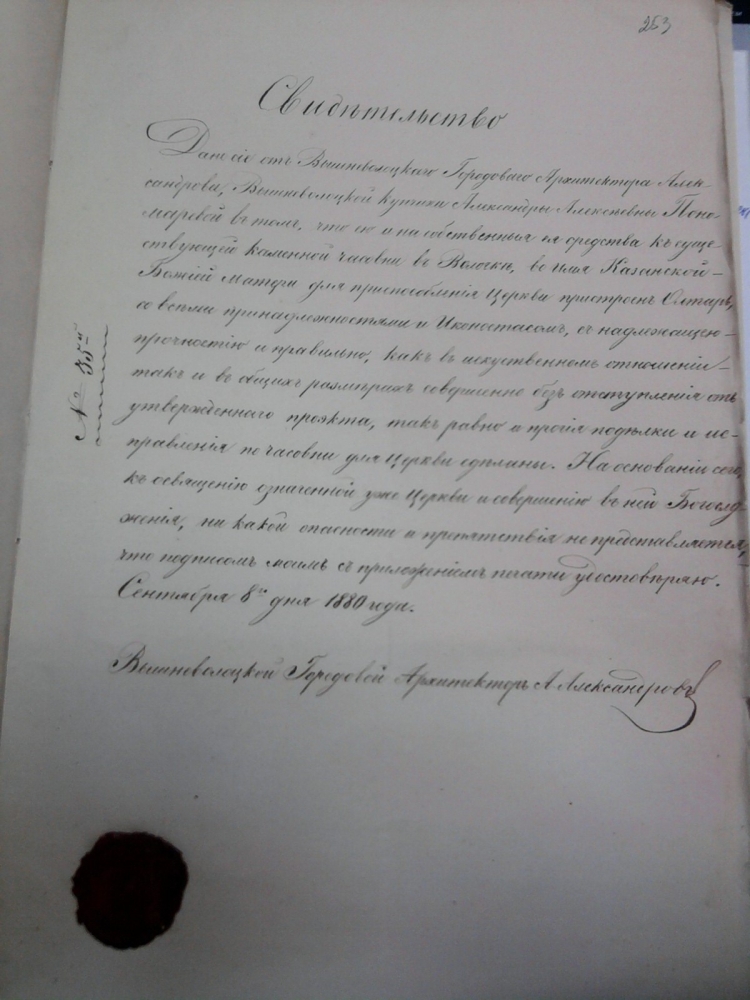 253
Свидѣтельство
Дано сіе отъ Вышневолоцкаго Городоваго Архитектора Алек-
сандрова, Вышневолоцкой купчихи Александры Алексѣевны Поно-
маревой въ томъ, что ею и на собственныя ея средства къ суще-
ствующей каменной часовни въ Волочкѣ, во имя Казанской
Божіей Матери для приспособленія Церкви пристроенъ Олтарь,
со всѣми принадлежностями и Иконостасомъ, съ надлежащею
прочностію и правильно, какъ въ искуственномъ отношеніи
такъ и во общихъ размѣрахъ совершенно безъ отступленія отъ
утвержденнаго проэкта, такъ равно и прочія подѣлки и ис-
правленія по часовни для Церкви сдѣланы. На основаніи сего,
къ освященію означенной уже Церкви и совершенію въ ней Богослу-
женія, ни какой опасности и препятствія не представляется,
что подписомъ моимъ съ приложеніемъ печати удостовѣряю.
Сентября 8го дня 1880 года.
№ 35й
Вышневолоцкой Городовой Архитекторъ А. Александровъ